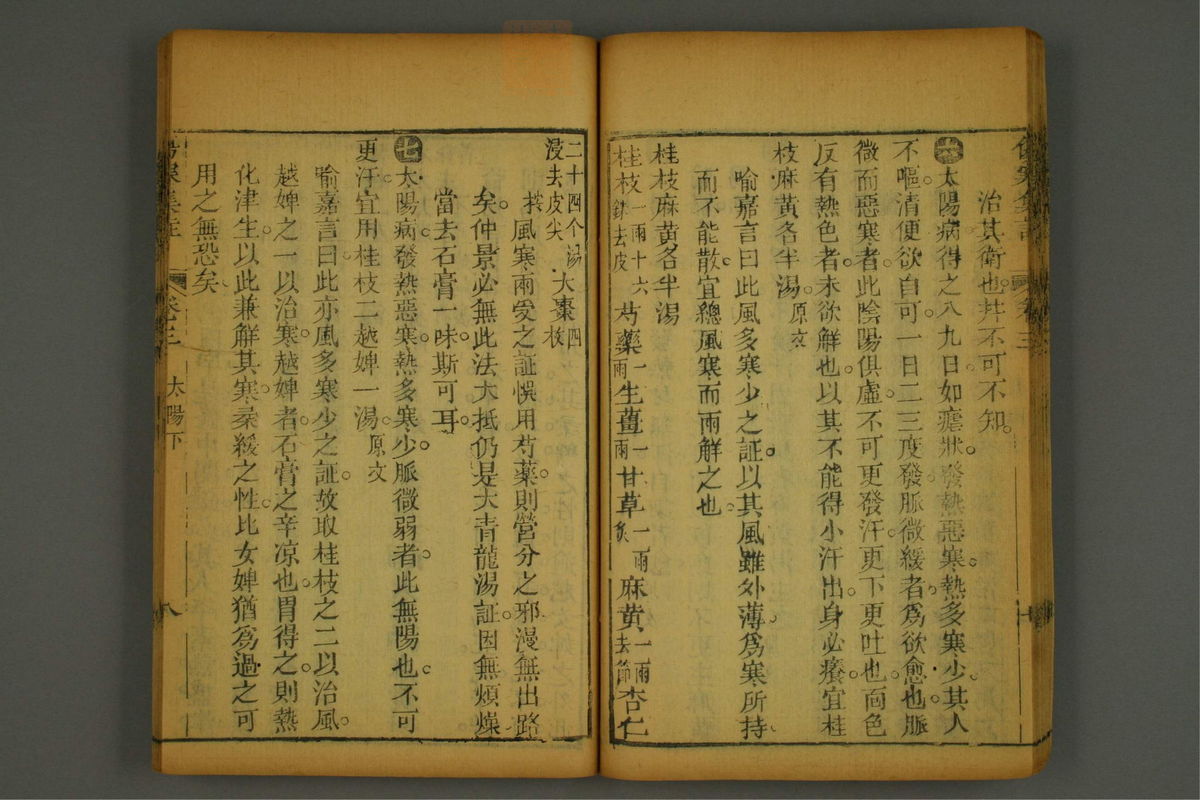 治其衛也并不可不知
六太陽病得之八九日如瘧狀發熱惡寒熱多寒少其人
不嘔清便欲自可一日二三度發脈微緩者為欲愈也脈
微而惡寒者此陰陽俱虛不可更發汗更下更吐也面色
反有熱色者未欲解也以其不能得小汗出身必癢宜桂
枝麻黃各半湯原文
喻嘉言曰此風多寒少之証以其風雖外薄為寒所持
而不能散宜總風寒而兩解之也
桂枝麻黃各半湯
桂枝一兩十六銖去皮 芍藥一兩 生薑一兩 甘草一兩炙 麻黃一兩去節 杏仁
二十四个湯浸去皮尖 大棗四枚
按風寒兩受之証悞用芍藥則營分之邪漫無出路
矣仲景必無此法大抵仍是大青龍湯証因無煩燥
當去石膏一味斯可耳
七太陽病發熱惡寒熱多寒少脈微弱者此無陽也不可
更汗宜用桂枝二越婢一湯原文
喻嘉言曰此亦風多寒少之証故取桂枝之二以治風
越婢之一以治寒越婢者石膏之辛凉也胃得之則熱
化津生以此兼解其寒柔緩之性比女婢猶為過之可
用之無恐矣
卷三 太陽下
八